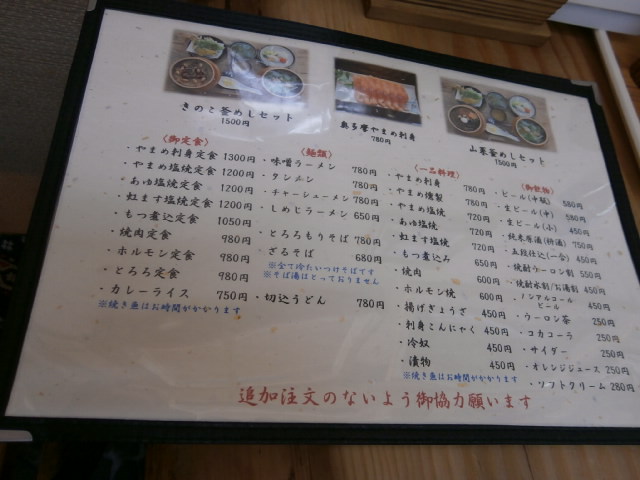 きのこ釜めしセット
1500円
奥多摩やまめ刺身
780円
山菜釜めしセット
1500円
〈御定食〉
・やまめ刺身定食 1300円
・やまめ塩焼定食 1200円
・あゆ塩焼定食 1200円
・虹ます塩焼定食 1200円
・もつ煮込定食 1050円
・焼肉定食 980円
・ホルモン定食 980円
・とろろ定食 980円
・カレーライス 750円
※焼き魚はお時間がかかります
〈麺類〉
・味噌ラーメン 780円
・タンメン 780円
・チャーシューメン 780円
・しめじラーメン 650円
・とろろもりそば 780円
・ざるそば 680円
※全て冷たいつけそばです
※そば湯はとっておりません
・切込うどん 780円
〈一品料理〉
・やまめ刺身 780円
・やまめ燻製 780円
・やまめ塩焼 720円
・あゆ塩焼 720円
・虹ます塩焼 720円
・もつ煮込み 650円
・焼肉 600円
・ホルモン焼 600円
・揚げぎょうざ 450円
・刺身こんにゃく 450円
・冷奴 450円
・漬物 450円
※焼き魚はお時間がかかります
〈御飲物〉
・ビール(中瓶) 580円
・生ビール(中) 580円
・生ビール(小) 450円
・純米原酒(枡酒) 750円
・五段仕込(一合) 450円
・焼酎ウーロン割 550円
・焼酎水割/お湯割 450円
・ノンアルコール
ビール 450円
・ウーロン茶 250円
・コカコーラ 250円
・サイダー 250円
・オレンジジュース 250円
・ソフトクリーム 280円
追加注文のないよう御協力願います